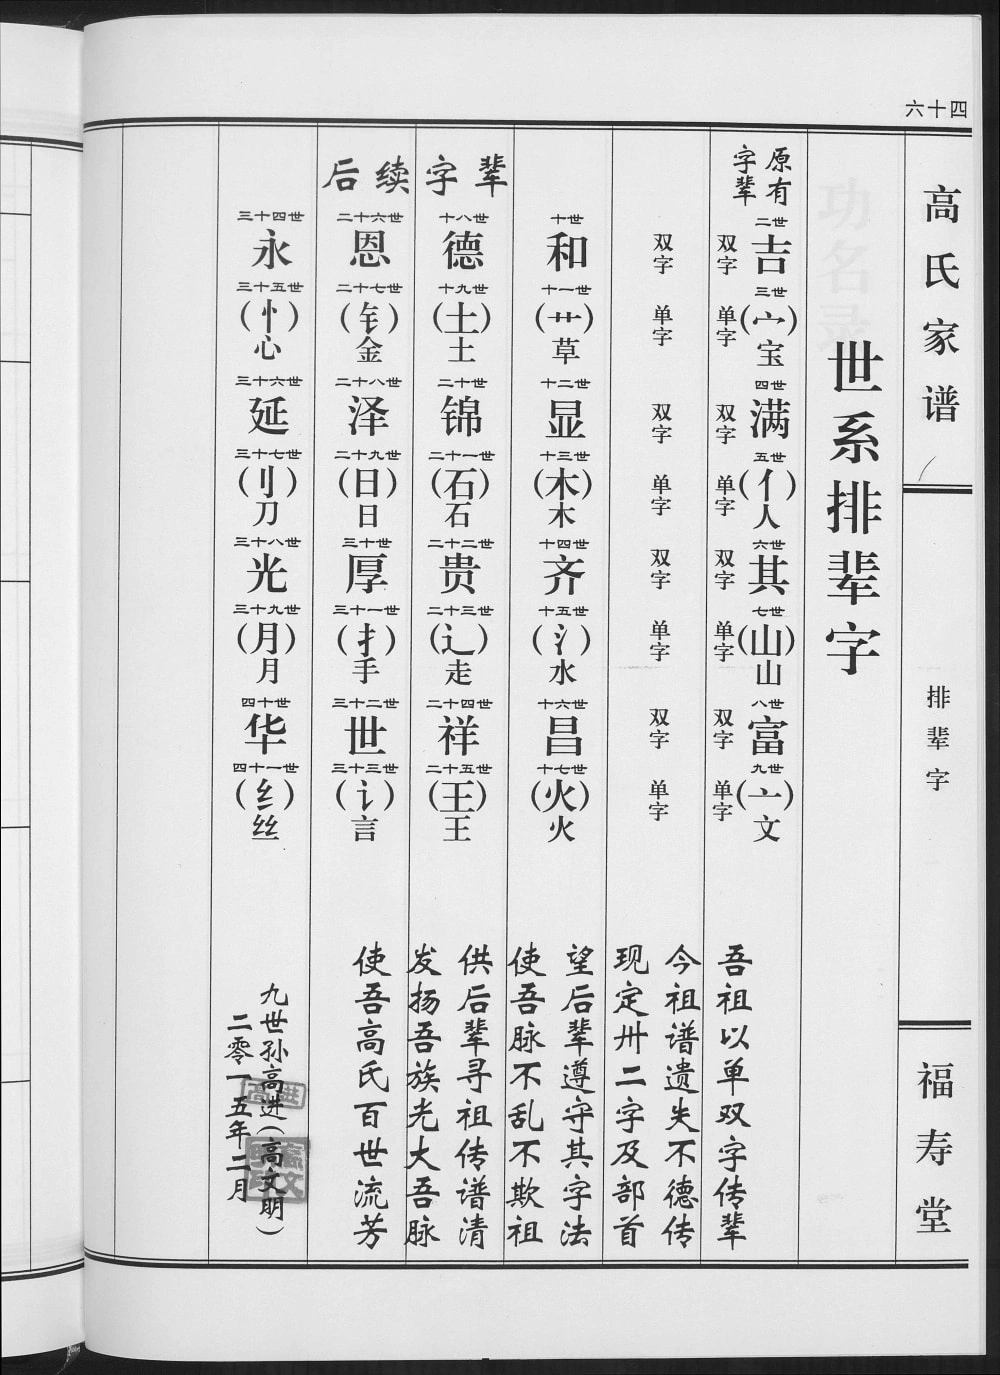 六十四
高氏家谱
排辈字
福寿堂
世系排辈字
原有
字辈
二世
吉
双字
三世
(宀)
宝
单字
四世
满
双字
五世
(亻)
人
单字
六世
其
双字
七世
(山)
山
单字
八世
富
双字
九世
(亠)
文
单字
后续字辈
十世
和
双字
十一世
(艹)
草
单字
十二世
显
双字
十三世
(木)
木
单字
十四世
齐
双字
十五世
(氵)
水
单字
十六世
昌
双字
十七世
(火)
火
单字
十八世
德
十九世
(土)
土
二十世
锦
二十一世
(石)
石
二十二世
贵
二十三世
(辶)
走
二十四世
祥
二十五世
(王)
王
二十六世
恩
二十七世
(钅)
金
二十八世
泽
二十九世
(日)
日
三十世
厚
三十一世
(扌)
手
三十二世
世
三十三世
(讠)
言
三十四世
永
三十五世
(忄)
心
三十六世
延
三十七世
(刂)
刀
三十八世
光
三十九世
(月)
月
四十世
华
四十一世
(纟)
丝
吾祖以单双字传辈
今祖谱遗失不德传
现定卅二字及部首
望后辈遵守其字法
使吾脉不乱不欺祖
供后辈寻祖传谱清
发扬吾族光大吾脉
使吾高氏百世流芳
九世孙高进(高文明)
二零一五年二月